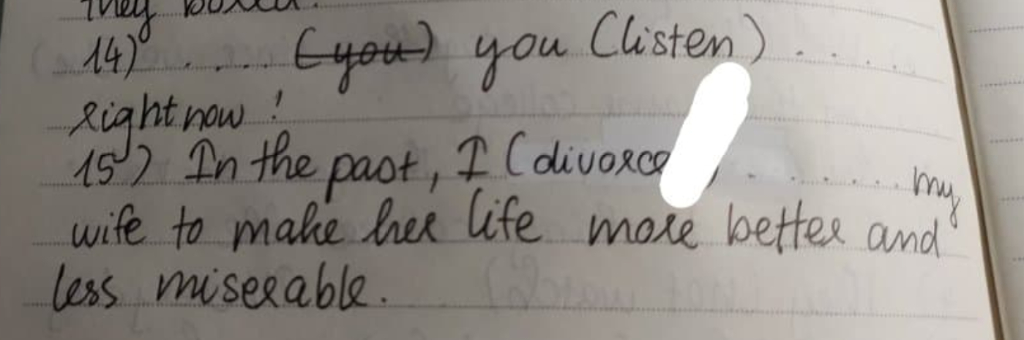 they boxed.
14) ..... (you) you (listen) ....
Right now !
15) In the past, I (divorce ) ....... my
wife to make her life more better and
less miserable.